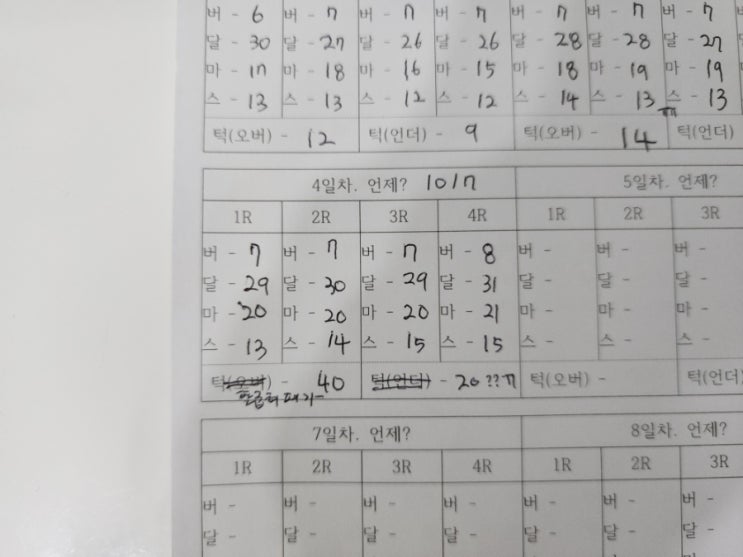 버 - 6 버 - 7 버 - 7 버 - 7 버 - 7 버 - 7 버 - 7
달 - 30 달 - 27 달 - 26 달 - 26 달 - 28 달 - 28 달 - 27
마 - 17 마 - 18 마 - 16 마 - 15 마 - 18 마 - 19 마 - 19
스 - 13 스 - 13 스 - 12 스 - 12 스 - 14 스 - 13 스 - 13
턱(오버) - 12 턱(언더) - 9 턱(오버) - 14 턱(언더)
4일차. 언제? 10/7 5일차. 언제?
1R 2R 3R 4R 1R 2R 3R
버 - 7 버 - 7 버 - 7 버 - 8 버 - 버 - 버 -
달 - 29 달 - 30 달 - 29 달 - 31 달 - 달 - 달 -
마 - 20 마 - 20 마 - 20 마 - 21 마 - 마 - 마 -
스 - 13 스 - 14 스 - 15 스 - 15 스 - 스 - 스 -
턱(오버) - 40 턱(언더) - 20 ?? 턱(오버) - 턱(언더)
7일차. 언제? 8일차. 언제?
1R 2R 3R 4R 1R 2R 3R
버 - 버 - 버 - 버 - 버 - 버 - 버 -
달 - 달 - 달 - 달 - 달 - 달 - 달 -